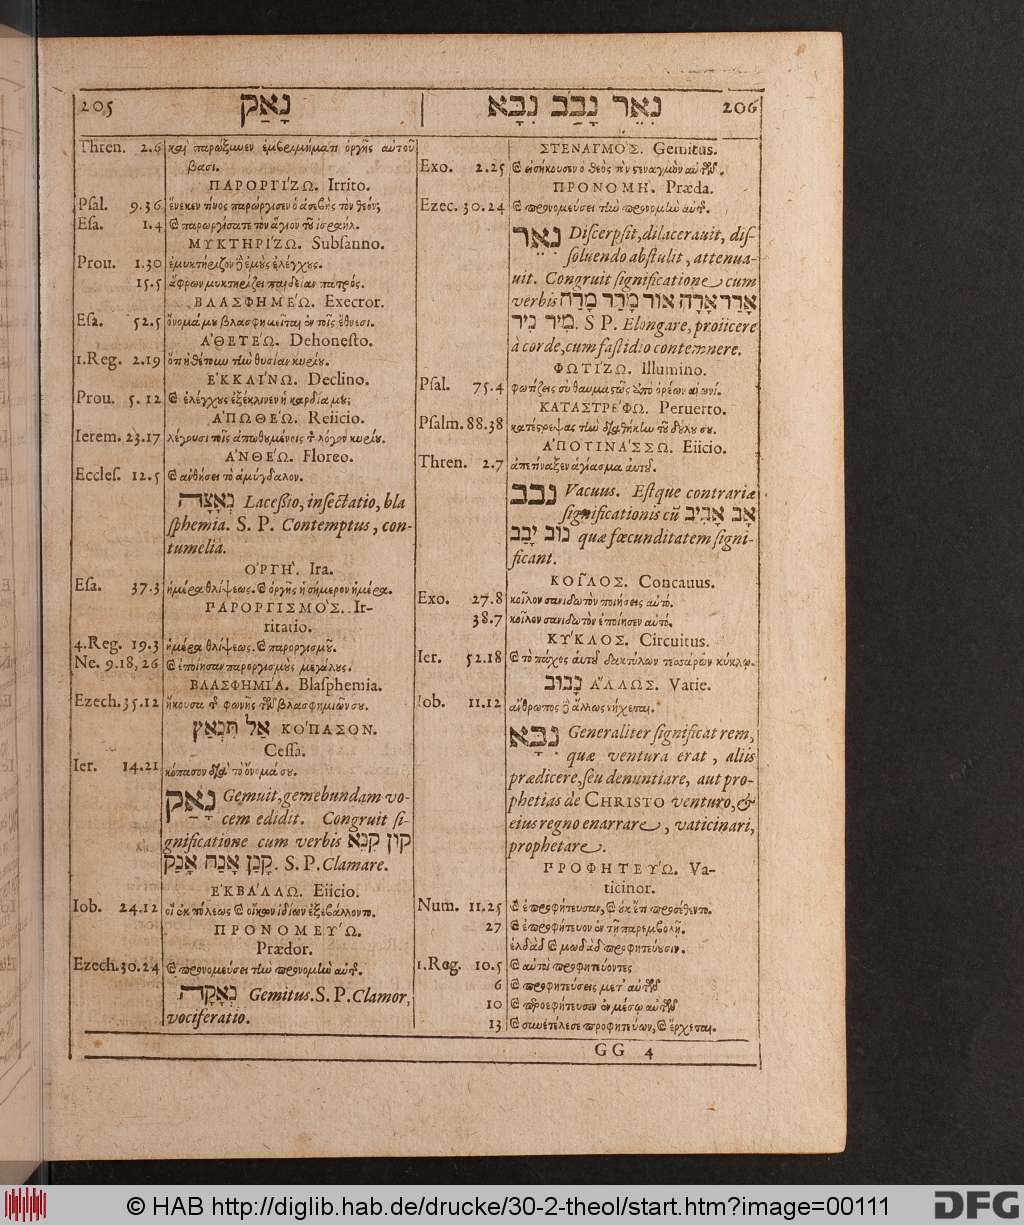 205 נָאַק
Thren. 2.6 καὶ παρώξυνεν ἐμβριμήματι ὀργῆς αὐτοῦ
βασι.
ΠΑΡΟΡΓΙ´ΖΩ. Irrito.
Psal. 9.36 ἕνεκεν τίνος παρώργισεν ὁ ἀσεβὴς τὸν θεόν;
Esa. 1.4 καὶ παρωργίσατε τὸν ἅγιον τοῦ ἰσραήλ.
ΜΥΚΤΗΡΙ´ΖΩ. Subsanno.
Prou. 1.30 ἐμυκτήριζον δὲ ἐμοὺς ἐλέγχους.
15.5 ἄφρων μυκτηρίζει παιδείαν πατρός.
ΒΛΑΣΦΗΜΕ´Ω. Execror.
Esa. 52.5 ὄνομά μου βλασφημεῖται ἐν τοῖς ἔθνεσι.
Α᾿ΘΕΤΕ´Ω. Dehonesto.
1.Reg. 2.19 ὅτι ἠθέτουν τὴν θυσίαν κυρίου.
Ε᾿ΚΚΛΙ´ΝΩ. Declino.
Prou. 5.12 καὶ ἐλέγχους ἐξέκλινεν ἡ καρδία μου;
Α᾿ΠΩΘΕ´Ω. Reiicio.
Ierem. 23.17 λέγουσι τοῖς ἀπωθουμένοις τὸν λόγον κυρίου.
Α᾿ΝΘΕ´Ω. Floreo.
Eccles. 12.5 καὶ ἀνθήσει τὸ ἀμύγδαλον.
נְאָצָה Lacessio, insectatio, bla
sphemia. S. P. Contemptus, con-
tumelia.
Ο᾿ΡΓΗ´. Ira.
Esa. 37.3 ἡμέρα θλίψεως. καὶ ὀργῆς ἡ σήμερον ἡμέρα.
ΠΑΡΟΡΓΙΣΜΟ´Σ. Ir-
ritatio.
4.Reg. 19.3 ἡμέρα θλίψεως. καὶ παροργισμοῦ.
Ne. 9.18, 26 καὶ ἐποίησαν παροργισμοὺς μεγάλους.
ΒΛΑΣΦΗΜΙ´Α. Blasphemia.
Ezech. 35.12 ἤκουσα τῆς φωνῆς τῶν βλασφημιῶν σου.
אַל תִּנְאַץ ΚΟ´ΠΑΣΟΝ.
Cessa.
Ier. 14.21 κόπασον διὰ τὸ ὄνομά σου.
נָאַק Gemuit, gemebundam vo-
cem edidit. Congruit si-
gnificatione cum verbis קִנֵּא קוּן
קָנַן אָנַח אָנַק. S. P. Clamare.
Ε᾿ΚΒΑ´ΛΛΩ. Eiicio.
Iob. 24.12 οἳ ἐκ πόλεως καὶ οἴκων ἰδίων ἐξεβάλλοντο.
ΠΡΟΝΟΜΕΥ´Ω.
Prædor.
Ezech. 30.24 καὶ προνομεύσει τὴν προνομὴν αὐτῆς.
נְאָקָה Gemitus. S. P. Clamor,
vociferatio.
נִאֵר נָבַב נִבָּא 206
ΣΤΕΝΑΓΜΟ´Σ. Gemitus.
Exo. 2.25 καὶ εἰσήκουσεν ὁ θεὸς τὸν στεναγμὸν αὐτῶν.
ΠΡΟΝΟΜΗ´. Præda.
Ezec. 30.24 καὶ προνομεύσει τὴν προνομὴν αὐτῆς.
נִאֵר Discerpsit, dilacerauit, dis-
soluendo abstulit, attenua-
uit. Congruit significatione cum
verbis אָרַר אָרָה אוּר מָרַר מָרַח
מִיר נִיר. S P. Elongare, proiicere
à corde, cum fastidio contemnere.
ΦΩΤΙ´ΖΩ. Illumino.
Psal. 75.4 φωτίζεις σὺ θαυμαστῶς ἀπὸ ὀρέων αἰωνί.
ΚΑΤΑΣΤΡΕ´ΦΩ. Peruerto.
Psalm. 88.38 κατέστρεψας τὴν διαθήκην τοῦ δούλου σου.
Α᾿ΠΟΤΙΝΑ´ΣΣΩ. Eiicio.
Thren. 2.7 ἀπετίναξεν ἁγίασμα αὐτοῦ.
נָבַב Vacuus. Estque contrariæ
significationis cū אָב אָבִיב
נוּב יָבַב quæ fœcunditatem signi-
ficant.
ΚΟΙ῀ΛΟΣ. Concauus.
Exo. 27.8 κοῖλον σανιδωτὸν ποιήσεις αὐτό.
38.7 κοῖλον σανιδωτὸν ἐποίησεν αὐτό.
ΚΥ´ΚΛΟΣ. Circuitus.
Ier. 52.18 καὶ τὸ πάχος αὐτοῦ δακτύλων τεσσάρων κύκλῳ.
נָבוּב Α῎ΛΛΩΣ. Varie.
Iob. 11.12 ἄνθρωπος δὲ ἄλλως νήχεται.
נִבָּא Generaliter significat rem,
quæ ventura erat, aliis
prædicere, seu denuntiare, aut pro-
phetias de CHRISTO venturo, &
eius regno enarrare, vaticinari,
prophetare.
ΠΡΟΦΗΤΕΥ´Ω. Va-
ticinor.
Num. 11.25 καὶ ἐπροφήτευσαν, καὶ οὐκ ἔτι προσέθεντο.
27 καὶ ἐπροφήτευον ἐν τῇ παρεμβολῇ.
ἐλδὰδ καὶ μωδὰδ προφητεύουσιν.
1.Reg. 10.5 καὶ αὐτοὶ προφητεύοντες
6 καὶ προφητεύσεις μετ᾿ αὐτῶν
10 καὶ προεφήτευσεν ἐν μέσῳ αὐτῶν
13 καὶ συνετέλεσε προφητεύων, καὶ ἔρχεται.
GG 4
© HAB http://diglib.hab.de/drucke/30-2-theol/start.htm?image=00111
DFG